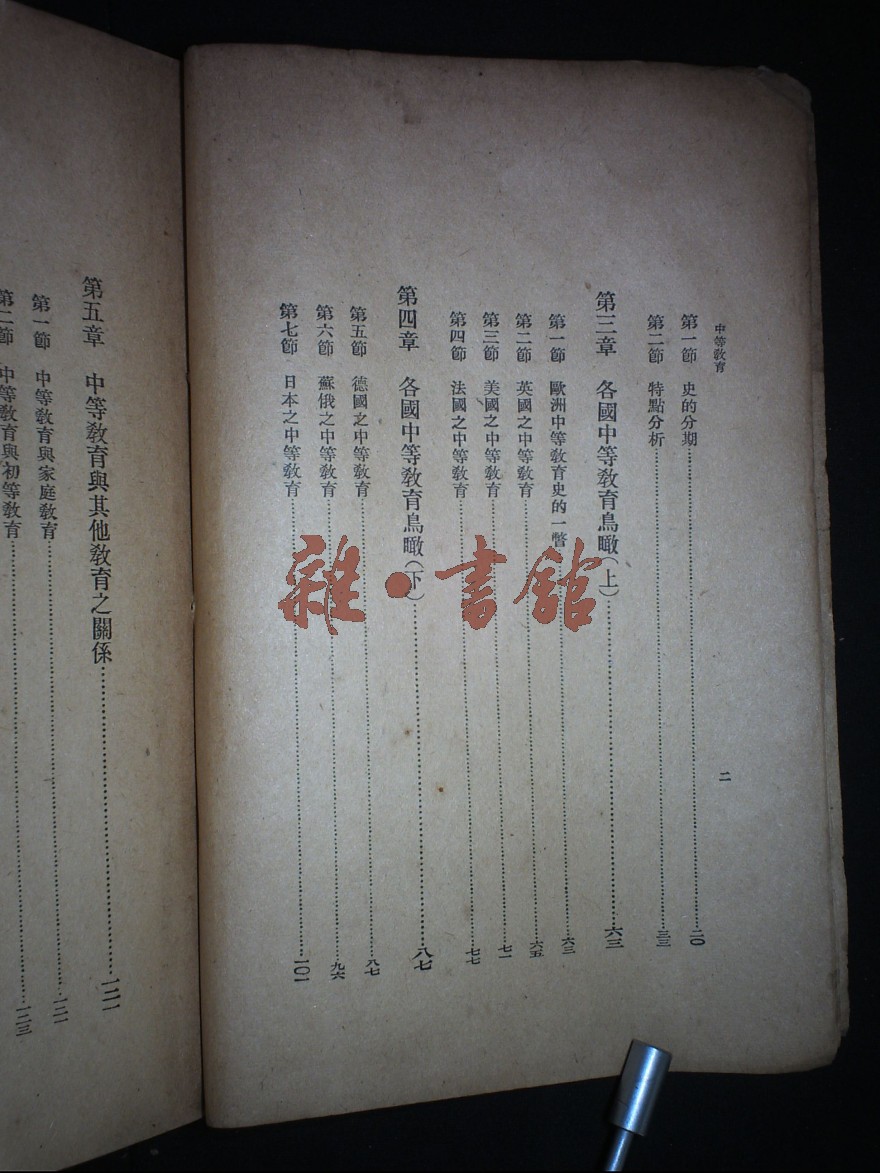 中等教育
二
第一節 史的分期……二〇
第二節 特點分析……三三
第三章 各國中等教育鳥瞰(上)……六三
第一節 歐洲中等教育史的一瞥……六三
第二節 英國之中等教育……六五
第三節 美國之中等教育……七一
第四節 法國之中等教育……七七
第四章 各國中等教育鳥瞰(下)……八七
第五節 德國之中等教育……八七
第六節 蘇俄之中等教育……九六
第七節 日本之中等教育……一〇一
第五章 中等教育與其他教育之關係……一二一
第一節 中等教育與家庭教育……一二一
第二節 中等教育與初等教育……一二三
雜·書館